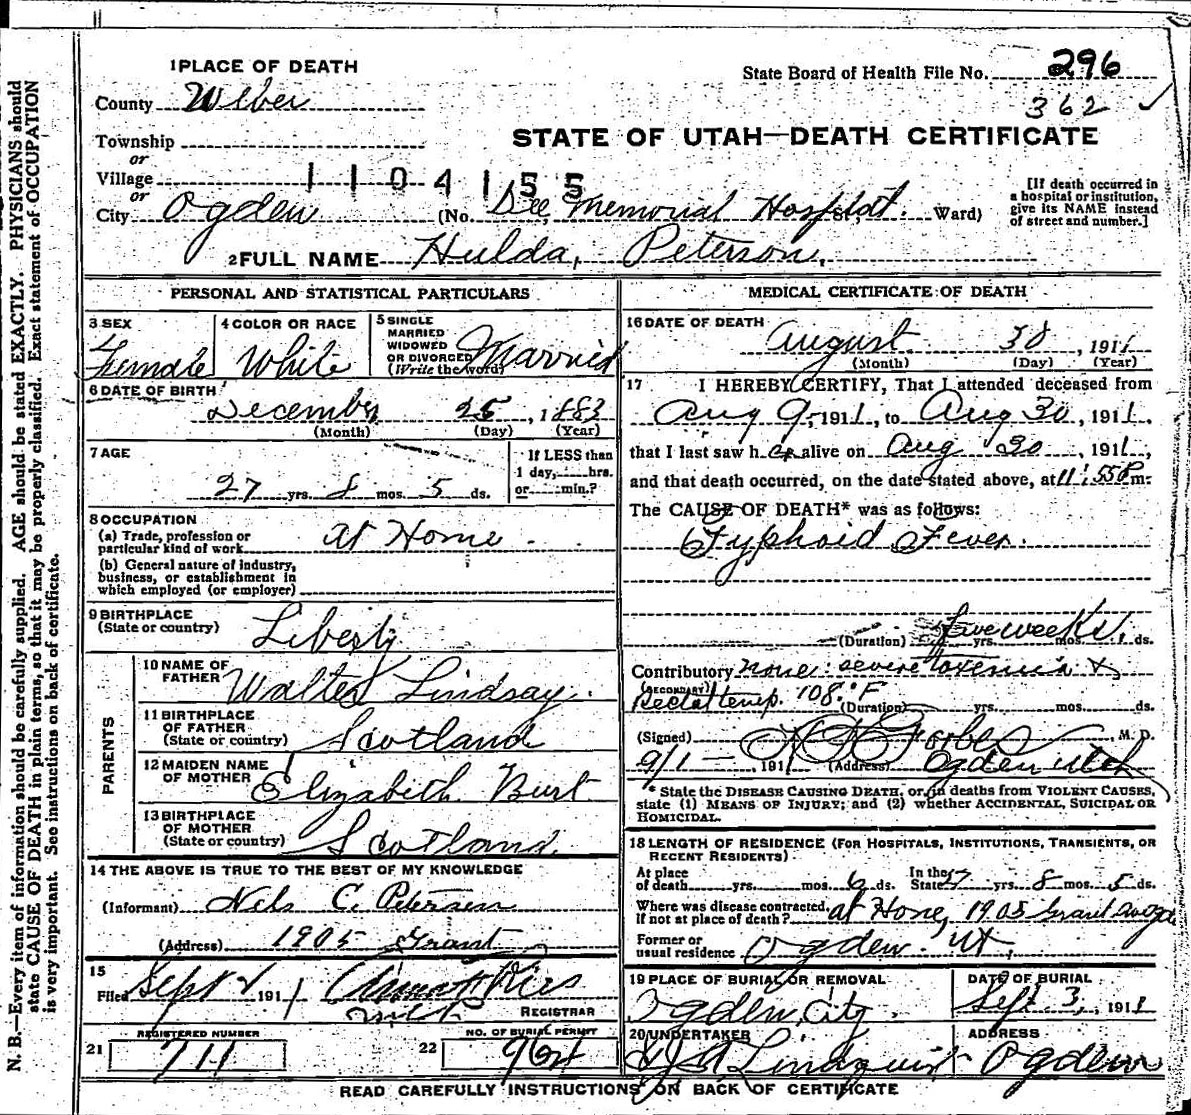 1 PLACE OF DEATH
State Board of Health File No. 296
County Weber
362
Township
STATE OF UTAH—DEATH CERTIFICATE
or
Village
1104155
or
City Ogden (No. Dee Memorial Hospital. Ward)
[If death occurred in a hospital or institution, give its NAME instead of street and number.]
2 FULL NAME Hulda, Peterson,
PERSONAL AND STATISTICAL PARTICULARS
3 SEX
Female
4 COLOR OR RACE
White
5 SINGLE MARRIED WIDOWED OR DIVORCED
(Write the word)
Married
6 DATE OF BIRTH
December 25, 1883
(Month) (Day) (Year)
7 AGE
27 yrs. 8 mos. 5 ds.
If LESS than
1 day, hrs.
or min.?
8 OCCUPATION
(a) Trade, profession or
particular kind of work
At Home
(b) General nature of industry,
business, or establishment in
which employed (or employer)
9 BIRTHPLACE
(State or country)
Liberty
PARENTS
10 NAME OF FATHER
Walter Lindsay.
11 BIRTHPLACE OF FATHER
(State or country)
Scotland
12 MAIDEN NAME OF MOTHER
Elizabeth Burt
13 BIRTHPLACE OF MOTHER
(State or country)
Scotland
14 THE ABOVE IS TRUE TO THE BEST OF MY KNOWLEDGE
(Informant) Nels C. Petersen
(Address) 1905 Grant
15
Filed Sept 1911
REGISTRAR
REGISTERED NUMBER
21 711
NO. OF BURIAL PERMIT
22
MEDICAL CERTIFICATE OF DEATH
16 DATE OF DEATH
August 30, 1911
(Month) (Day) (Year)
17 I HEREBY CERTIFY, That I attended deceased from
Aug 9, 1911, to Aug 30, 1911,
that I last saw her alive on Aug 30, 1911,
and that death occurred, on the date stated above, at 11:55 P m.
The CAUSE OF DEATH* was as follows:
Typhoid Fever.
(Duration) five weeks yrs. mos. ds.
Contributory none: severe toxemia &
(SECONDARY)
Rectal temp. 108° F
(Duration) yrs. mos. ds.
(Signed) M. D.
9/1 — 1911 (Address) Ogden Utah
* State the DISEASE CAUSING DEATH, or, in deaths from VIOLENT CAUSES,
state (1) MEANS OF INJURY; and (2) whether ACCIDENTAL, SUICIDAL OR
HOMICIDAL.
18 LENGTH OF RESIDENCE (FOR HOSPITALS, INSTITUTIONS, TRANSIENTS, OR
RECENT RESIDENTS)
At place of death yrs. mos. 6 ds. In the State 27 yrs. 8 mos. 5 ds.
Where was disease contracted,
if not at place of death? at Home, 1905 Grant
Former or
usual residence Ogden. Ut,
19 PLACE OF BURIAL OR REMOVAL
Ogden City.
DATE OF BURIAL
Sept. 3, 1911
20 UNDERTAKER
Lindquist
ADDRESS
Ogden
READ CAREFULLY INSTRUCTIONS ON BACK OF CERTIFICATE
N. B.—Every item of information should be carefully supplied. AGE should be stated EXACTLY. PHYSICIANS should
state CAUSE OF DEATH in plain terms, so that it may be properly classified. Exact statement of OCCUPATION
is very important. See instructions on back of certificate.